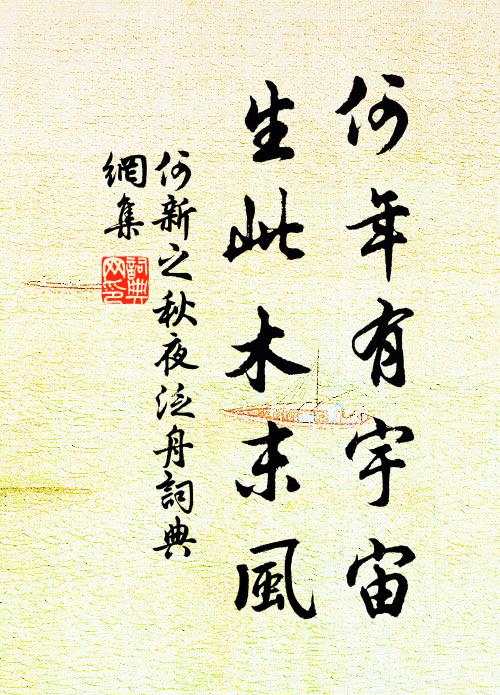 何年有宇宙
生此木末風
何新之秋夜泛舟詞典
網集
詞典網印